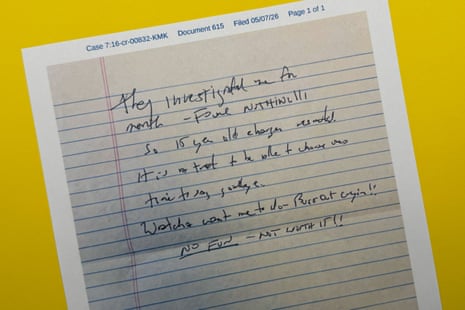 Case 7:16-cr-00832-KMK Document 615 Filed 05/07/26 Page 1 of 1
They investigated me for
month - Found NOTHING!!!
So 15 year old charges
It is to be able to choose
time to say goodbye.
want me to do - Burst out
NO FUN - NOT WORTH IT!!